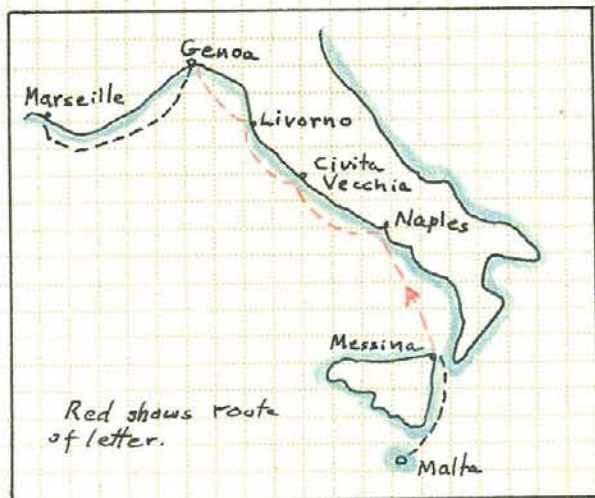 Genoa
Marseille
Livorno
Civita
Vecchia
Naples
Messina
Red shows route
of letter.
Malta